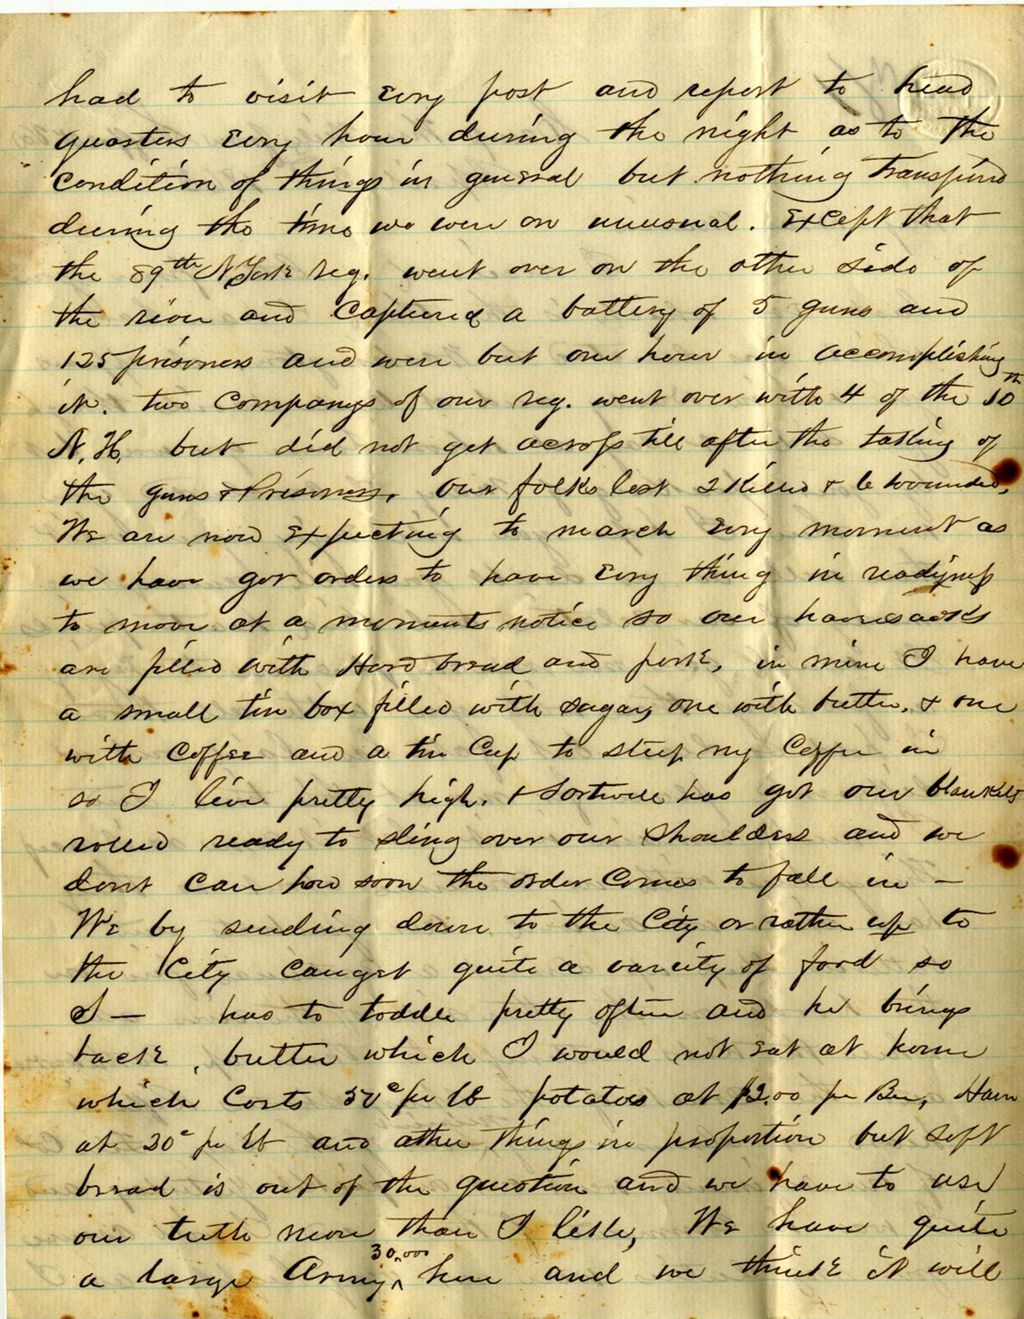 had to visit evry post and report to head
quarters evry hour during the night as to the
condition of things in general but nothing transpired
during the time we were on unusual. Except that
the 89th N York reg. went over on the other side of
the river and captured a battery of 5 guns and
125 prisoners and were but one hour in accomplishing
it. two companys of our reg. went over with 4 of the 10th
N. H. but did not get across till after the taking of
the guns & Prisoners. our folks lost 2 killed & 6 wounded.
We are now expecting to march evry moment as
we have got orders to have evry thing in readyness
to move at a moments notice so our haversacks
are filled with Hard bread and pork, in mine I have
a small tin box filled with sugar, one with butter, & one
with Coffee and a tin Cup to steep my Coffee in
so I live pretty high. & Sortwell has got our blankets
rolled ready to sling over our shoulders and we
dont care how soon the order comes to fall in —
We by sending down to the City or rather up to
the City can get quite a variety of food so
S — has to toddle pretty often and he brings
back, butter which I would not eat at home
which costs 50c per lb potatoes at $2.00 per Bu, Ham
at 20c per lb and other things in proportion but soft
bread is out of the question and we have to use
our teeth more than I like, We have quite
a large Army 30,000 here and we think it will